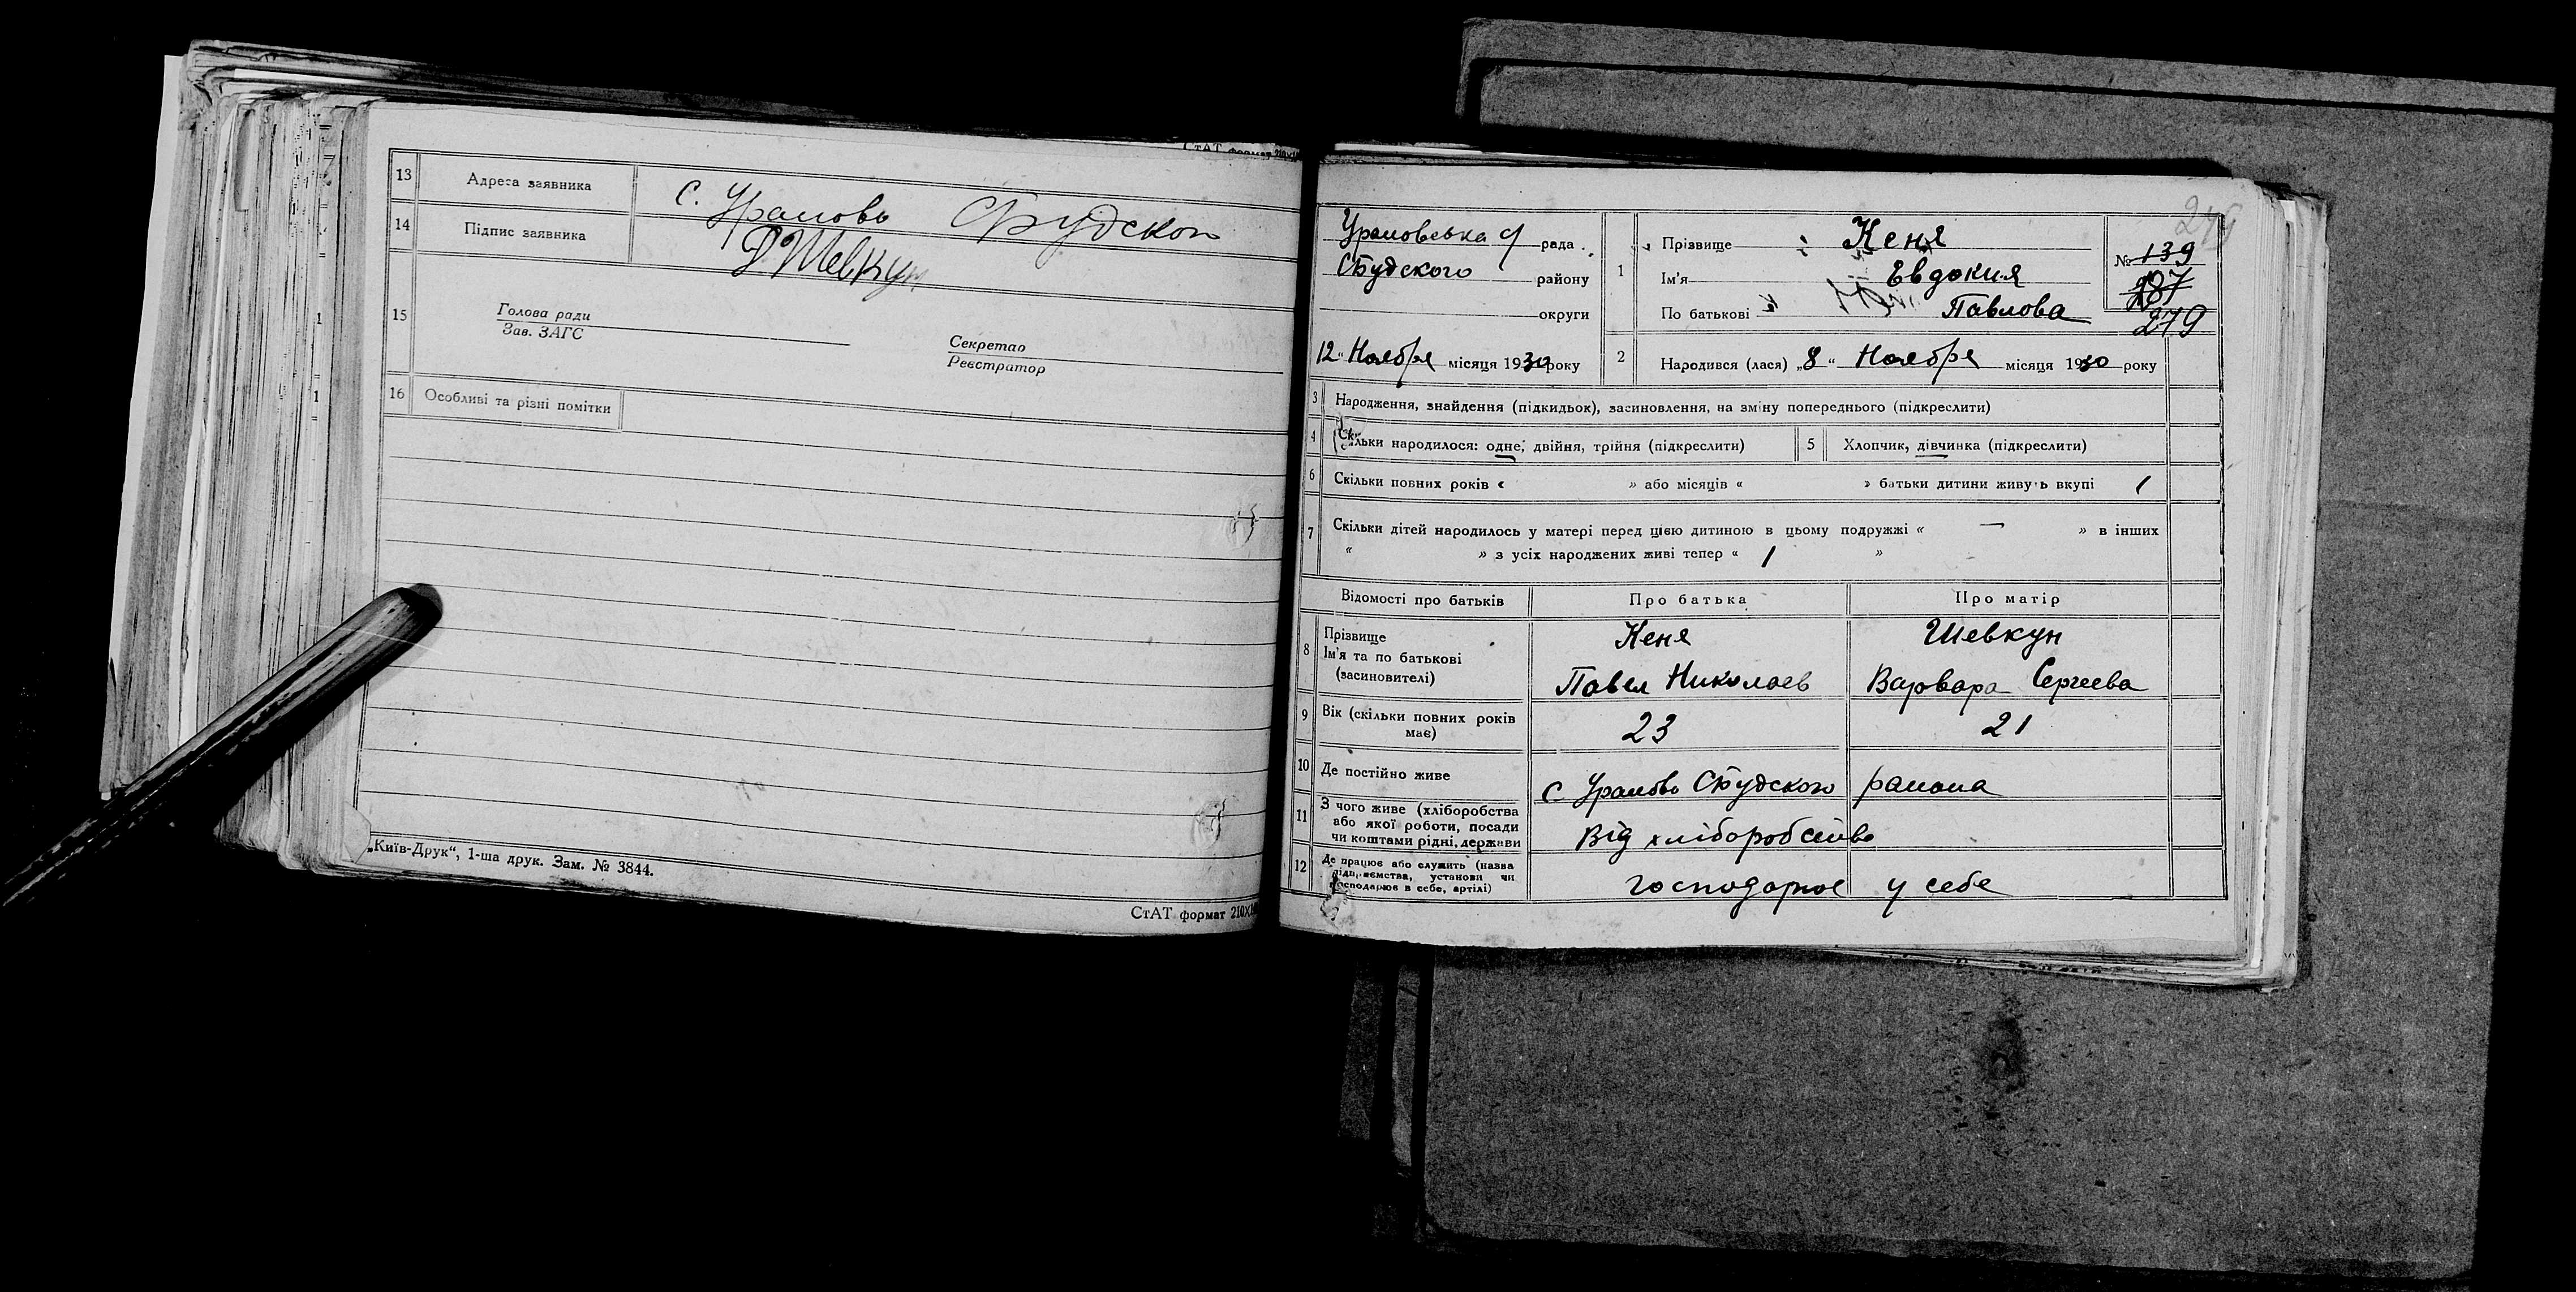 СтАТ формат 210×
13 Адреса заявника с. Уралово СБудского
14 Підпис заявника Шевкун
15 Голова ради
Зав. ЗАГС
Секретар
Реєстратор
16 Особливі та різні помітки
„Київ-Друк“, 1-ша друк. Зам. № 3844.
СтАТ формат 210×
Ураловська с/ рада
СБудского району
округи
12 „ Ноября місяця 1930 року
1 Прізвище Кеня
Ім'я Евдокия
По батькові Павлова
№ 139
287
279
2 Народився (лася) „8 “ Ноября місяця 1930 року
3 Народження, знайдення (підкидьок), засиновлення, на зміну попереднього (підкреслити)
4 Скільки народилося: одне, двійня, трійня (підкреслити)
5 Хлопчик, дівчинка (підкреслити)
6 Скільки повних років « » або місяців « » батьки дитини живуть вкупі 1
7 Скільки дітей народилось у матері перед цією дитиною в цьому подружжі « — » в інших
« » з усіх народжених живі тепер « 1 »
Відомості про батьків Про батька Про матір
8 Прізвище Кеня Шевкун
Ім'я та по батькові
(засиновителі) Павел Николаев Варвара Сергеева
9 Вік (скільки повних років має) 23 21
10 Де постійно живе с Уралово СБудского района
11 З чого живе (хліборобства
або якої роботи, посади
чи коштами рідні, держави Від хліборобства
12 Де працює або служить (назва
підприємства, установи чи
господарює в себе, артілі) господарює у себе